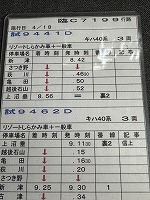 臨C7199行路
施行日 4/18
試9441D キハ40系 3両
リゾートしらかみ車+一般車
停車場名 着 発 番線 記事
新津 8.42
さつき野 ↓
荻川 ↓ 46
亀田 ↓ 50
越後石山 ↓
上沼垂 56 = 裏2
試9462D キハ40系 3両
リゾートしらかみ車+一般車
停車場名 着 発 番線 記事
上沼垂 9.11 裏2 信上
越後石山 ↓ 15
亀田 ↓ 16
荻川 ↓
さつき野 ↓
新津 9.25 9.30 1
古津 ↓ 34